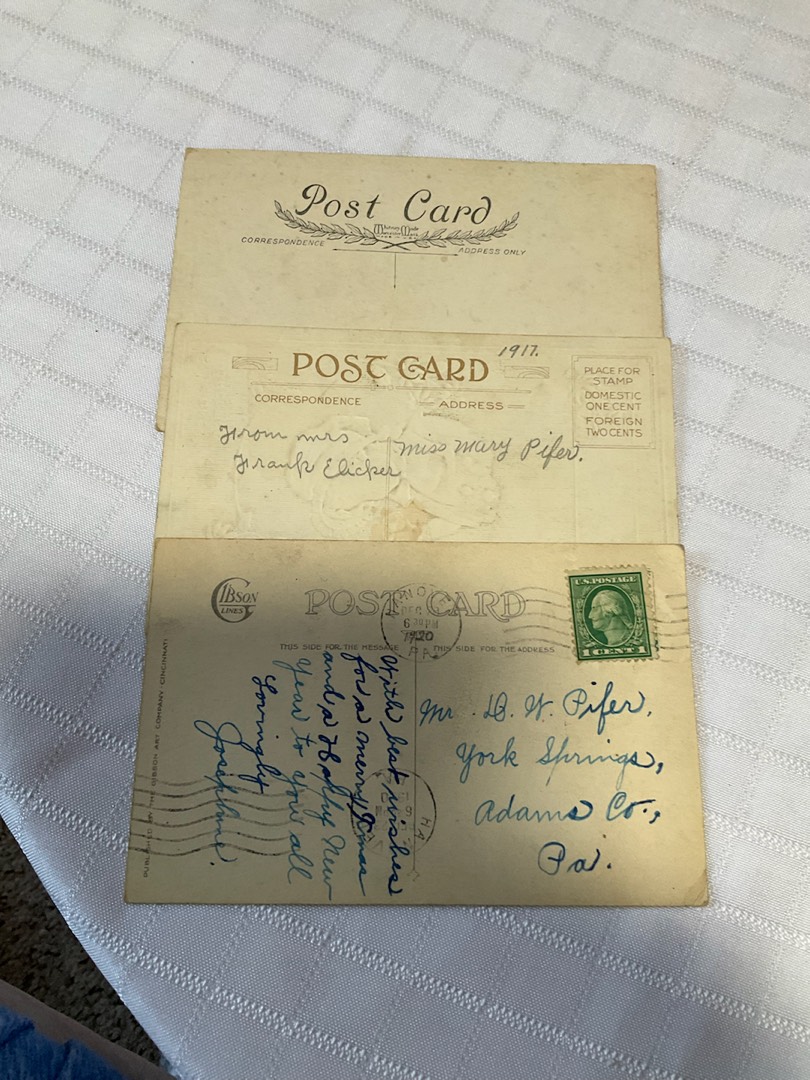 Post Card
CORRESPONDENCE
ADDRESS ONLY
POST CARD
1917.
CORRESPONDENCE
ADDRESS
PLACE FOR
STAMP
DOMESTIC
ONE CENT
FOREIGN
TWO CENTS
From mrs
Frank Elicker
Miss Mary Pifer.
GIBSON
LINES
POST CARD
DEC
9
1920
PA
U.S. POSTAGE
1 CENT 1
THIS SIDE FOR THE MESSAGE
THIS SIDE FOR THE ADDRESS
With best wishes
for a merry Xmas
and a Happy New
Year to you all
Lovingly
Josephine.
Mr. D. W. Pifer,
York Springs,
Adams Co.,
Pa.
PUBLISHED BY THE GIBSON ART COMPANY, CINCINNATI